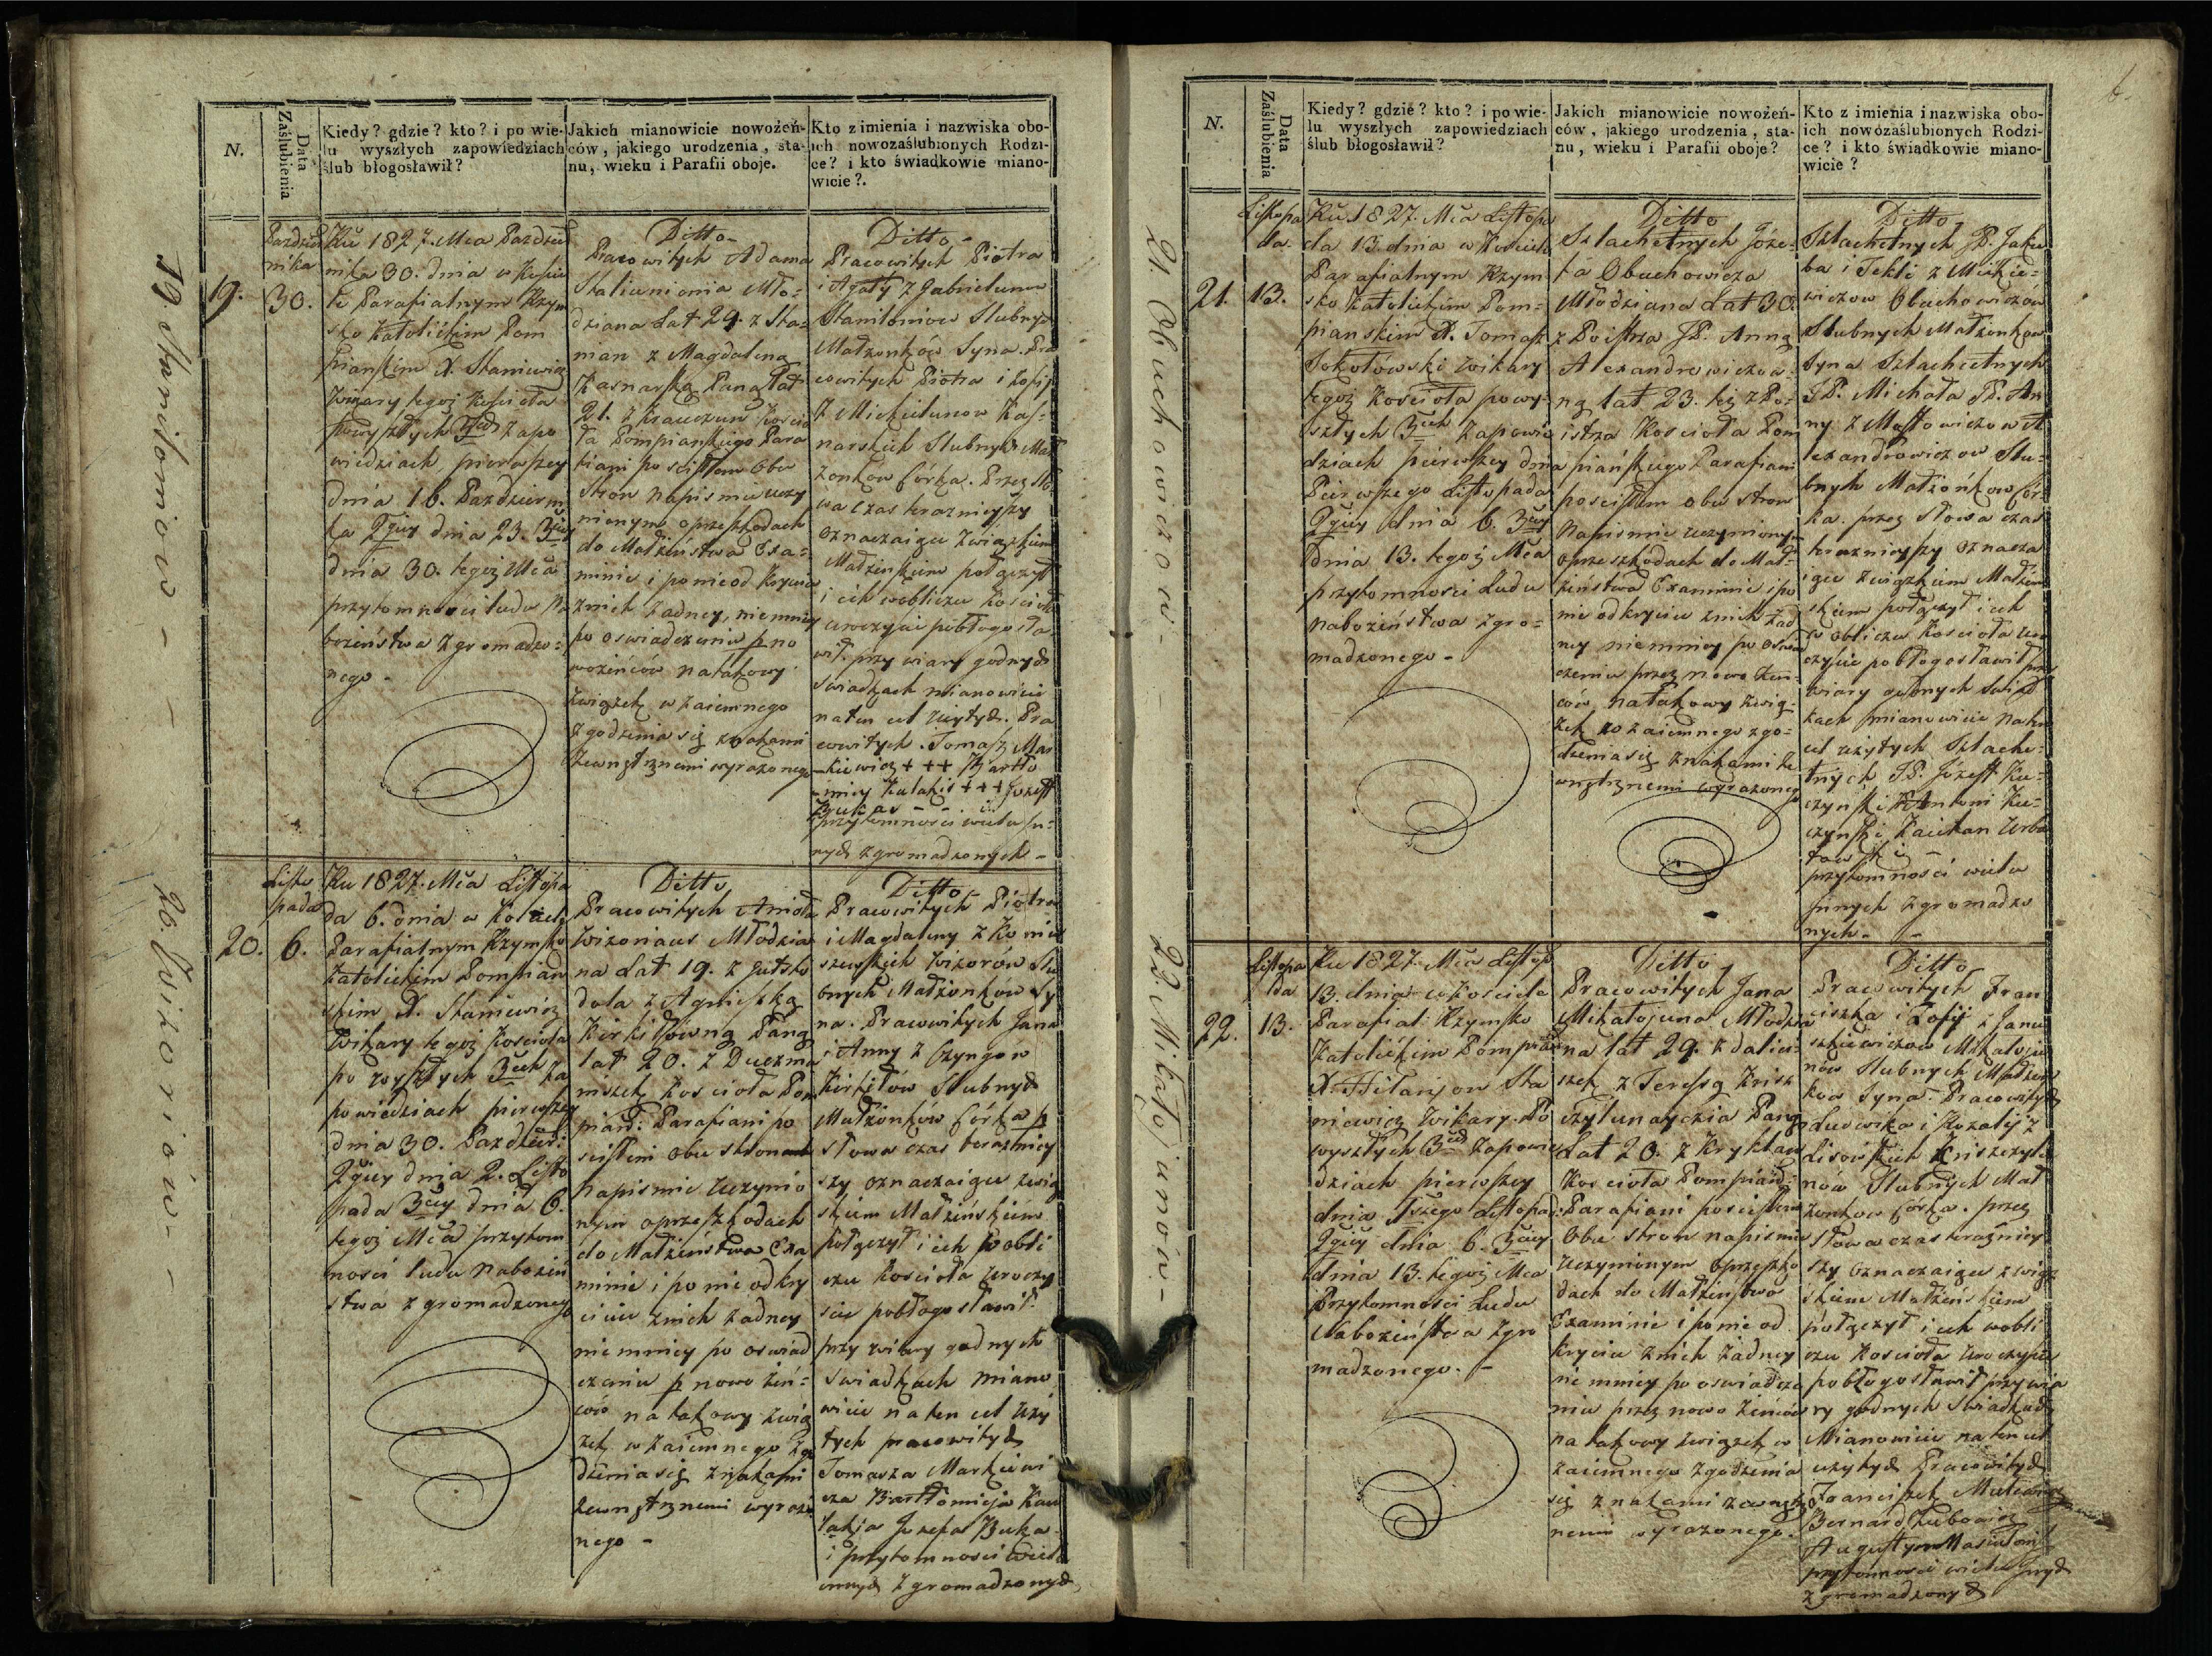 19 Stanilomiow -
20. Wizorów -
N.
Data Zaślubienia
Kiedy? gdzie? kto? i po wie-
lu wyszłych zapowiedziach
ślub błogosławił?
Jakich mianowicie nowożeń-
ców, jakiego urodzenia, sta-
nu, wieku i Parafii oboje.
Kto z imienia i nazwiska obo-
ich nowozaślubionych Rodzi-
ce? i kto świadkowie miano-
wicie?.
19.
Pazdzier
nika
30.
Ru 1827. Mca Pazdzier
nika 30. dnia w Kościele
Parafialnym Rzym
sko Katolickim Pom
piańskim X. Staniewicz
Wikary tegoż Kościoła
powyszłych 3ch zapo
wiedziach, pierwszey
dnia 16. Pazdzierni
ka 2giey dnia 23. 3ciey
dnia 30. tegoż Mca
przytomności ludu Na
bożeństwa zgromadzo=
nego -
Ditto -
Pracowitych Adama
Staliunionia Mło=
dziana Lat 24. z Sta=
nian z Magdaleną
Kasnarską Panną Lat
21. z Krauczun Kościo
ła Pompiańskiego Para
fiani po ścisłem Obu
Stron napismie uczy
nionym oprzeszkodach
do Małżeństwa Exa=
minie i po nieod kryciu
znich żadney, niemniey
po oswiadczeniu p no
wożeńcow natakowy
związek wzaiemnego
zgodzenia się znakami
zewnętrznemi wyrażonego
Ditto -
Pracowitych Piotra
i Agaty z Gabrielunow
Stanilomiow Slubnych
Małżonków Syna. Pra
cowitych Piotra i Zofij
z Mickielunow Kas=
narskich Slubnych Mał
żonkow Córka. Przez Sło
wa czas teraznieyszy
oznaczaiące związkiem
Małżeńskim połączył
i ich wobliczu Kościoła
uroczyście pobłogosła
wił. przy wiary godnych
świadkach mianowicie
naten cel użytych. Pra
cowitych. Tomasz Mar
kiewicz + + + Bartło
miey Kulakis + + + Jozeff
Bukas - - i
przytomności wielu In=
nych zgromadzonych -
20.
Listo
pada
6.
Ru 1827. Mca Listopa
da 6. dnia w Kościele
Parafialnym Rzymsko
Katolickim Pompiań
skim X. Staniewicz
Wikary tegoż Kościoła
po wyszłych 3ech za
powiedziach pierwszey
dnia 30. Pazdzier:
2giey dnia 2. Listo
pada 3ciey dnia 6.
tegoż Mca przytom
ności ludu Nabożeń
stwa zgromadzonego
Ditto
Pracowitych Anioła
Wizoniaus Młodzia
na Lat 19. z Gutsto
dola z Agnieszką
Kirkiłówną Panną
lat 20. z Duczmi
niszek Kościoła Pom
piań: Parafiani po
ścisłem obu stronach
napismie uczynio
nym oprzeszkodach
do Małżeństwa Exa
minie i po nie odkry
ciu znich żadney
niemniey po oswiad
czeniu p nowożeń=
ców na takowy zwią
zek wzaiemnego zgo
dzenia się znakami
zewnętrznemi wyrażo
nego -
Ditto -
Pracowitych Piotra
i Magdaleny z Konie
szewskich Wizorów Slu
bnych Małżonkow Sy
na. Pracowitych Jana
i Anny z Czyngow
Kirkiłów Slubnych
Małżonków Córka p
słowa czas teraźniey
szy oznaczaiące zwią
zkiem Małżeńskiem
połączył i ich w obli
czu Kościoła Uroczy
ście pobłogosławił
przy wiary godnych
świadkach miano
wicie na ten cel uży
tych pracowitych
Tomasza Markiewi
cza Bartłomieja Ku
lakja Jozefa Buka
i przytomności wielu
innych zgromadzonych
21. Obuchowiczow -
22. Mikałojunow. -
N.
Data Zaślubienia
Kiedy? gdzie? kto? i po wie-
lu wyszłych zapowiedziach
ślub błogosławił?
Jakich mianowicie nowożeń-
ców, jakiego urodzenia, sta-
nu, wieku i Parafii oboje?
Kto z imienia i nazwiska obo-
ich nowozaślubionych Rodzi-
ce? i kto świadkowie miano-
wicie?
21.
Listopa
da
13.
Ru 1827. Mca Listopa
da 13. dnia w Kościele
Parafialnym Rzym
sko Katolickim Pom=
piańskim X. Tomasz
Sokołowski Wikary
tegoż Kościoła powy=
szłych 3ech zapowie
dziach pierwszey dnia
Pierwszego Listopada
2giey dnia 6. 3ciey
dnia 13. tegoż Mca
przytomności Ludu
nabożeństwa zgro=
madzonego -
Ditto
Szlachetnych Józe=
fa Obuchowicza
Młodziana Lat 30.
z Poistra JP. Anną
Alexandrowiczow
ną lat 23. też z Po=
istra Kościoła Pom
piańskiego Parafiani
pościsłem obu stron
Napismie uczynionym
oprzeszkodach do Mał=
żeństwa Examinie i po
nie odkryciu znich żad
ney niemniey po oswiad
czeniu przez nowo żeń=
ców natakowy zwią=
zek wzaiemnego zgo=
dzenia się znakami ze
wnętrznemi wyrażonego
Ditto
Szlachetnych JP. Jaku
ba i Tekli z Mickie=
wiczow Obuchowiczów
Slubnych Małżonkow
Syna Szlachetnych
JP. Michała JP. An
ny z Mossowiczow A
lexandrowiczow Slu=
bnych Małżonkow Cór=
ka. przez słowa czas
teraznieyszy oznacza
iące związkiem Małżeń
skiem połączył i ich
w obliczu Kościoła uro
czyście pobłogosławił przy
wiary godnych świad
kach mianowicie na ten
cel użytych Szlache=
tnych JP. Józeff Ku=
czyński Antoni Ku=
czyński Kaietan Urba
towski
przytomności wielu
Innych zgromadzo
nych - -
22.
Listopa
da
13.
Ru 1827. Mca Listop
13. dnia w Kościele
Parafial: Rzymsko
Katolickim Pompiań
X Hilarjon Sta
niewicz Wikary. Po
wyszłych 3ech Zapowie
dziach pierwszey
dnia 1szego Listopad:
2giey dnia 6. 3ciey
dnia 13. tegoż Mca
Przytomności Ludu
Nabożeństwa zgro
madzonego. -
Ditto
Pracowitych Jana
Mikałojuna Młodzia
na lat 29. z Daliei=
szek z Teressą Krisz
czytunayczia Panną
Lat 20. z Kryklan
Kościoła Pompiań:
Parafiani pościsłem
Obu stron napismie
uczynionym oprzeszko
dach do Małżeństwa
Examinie i po nie od
kryciu znich żadney
niemniey po oswiadcze
niu przez nowo żeńców
na takowy związek w
zaiemnego zgodzenia
się znakami zewnętrz
nemi wyrażonego.
Ditto
Pracowitych Fran
ciszka i Zofij z Janu
szkiewiczow Mikałoju
now Slubnych Małżon
kow Syna. Pracowitych
Ludwika i Rozalij z
Lisowskich Kriszczytu
nów Slubnych Mał
żonkow Córka. przez
słowa czas teraźniey
szy oznaczaiące związ
skiem Małżeńskiem
połączył i ich wobli
czu Kościoła Uroczyście
pobłogosławił przy wia
ry godnych Swiadkach
Mianowicie na ten cel
użytych Pracowitych
Franciszek
Bernard Zubowicz
Augustyn
przytomności wielu Innych
zgromadzonych